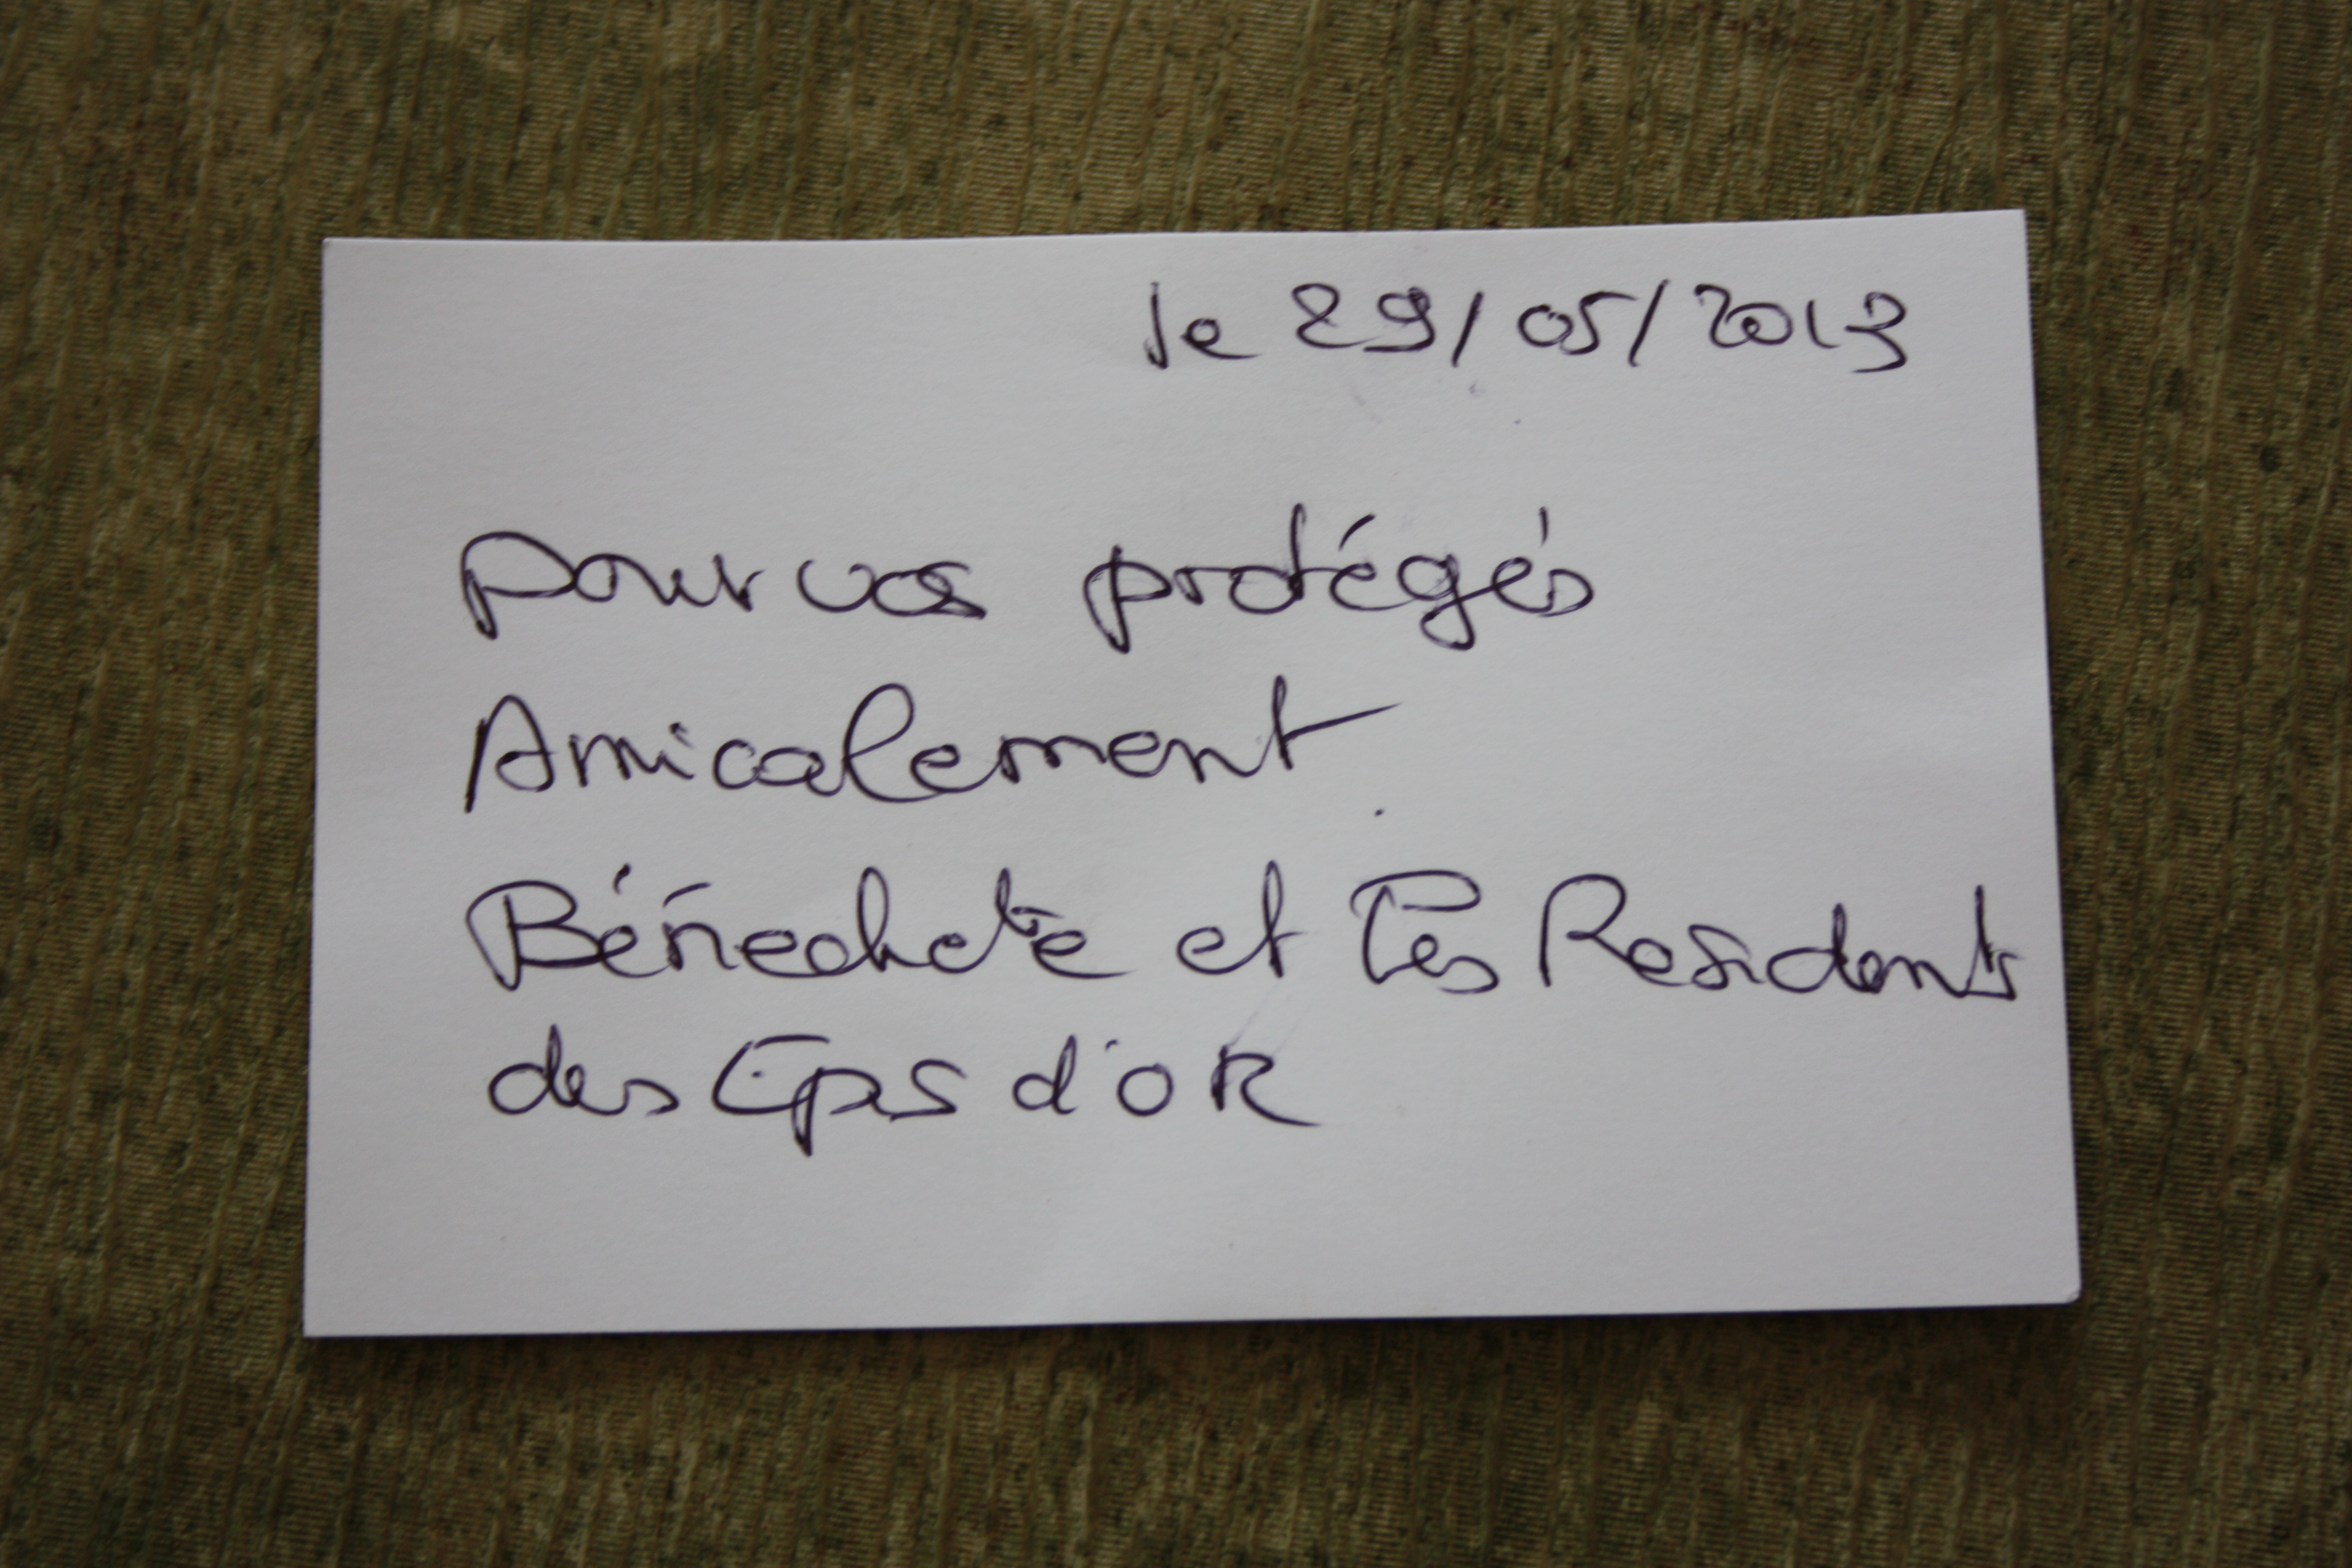 le 29/05/2013
pour vos protégés
Amicalement
Bénédicte et les Residents
des Epis d'oR